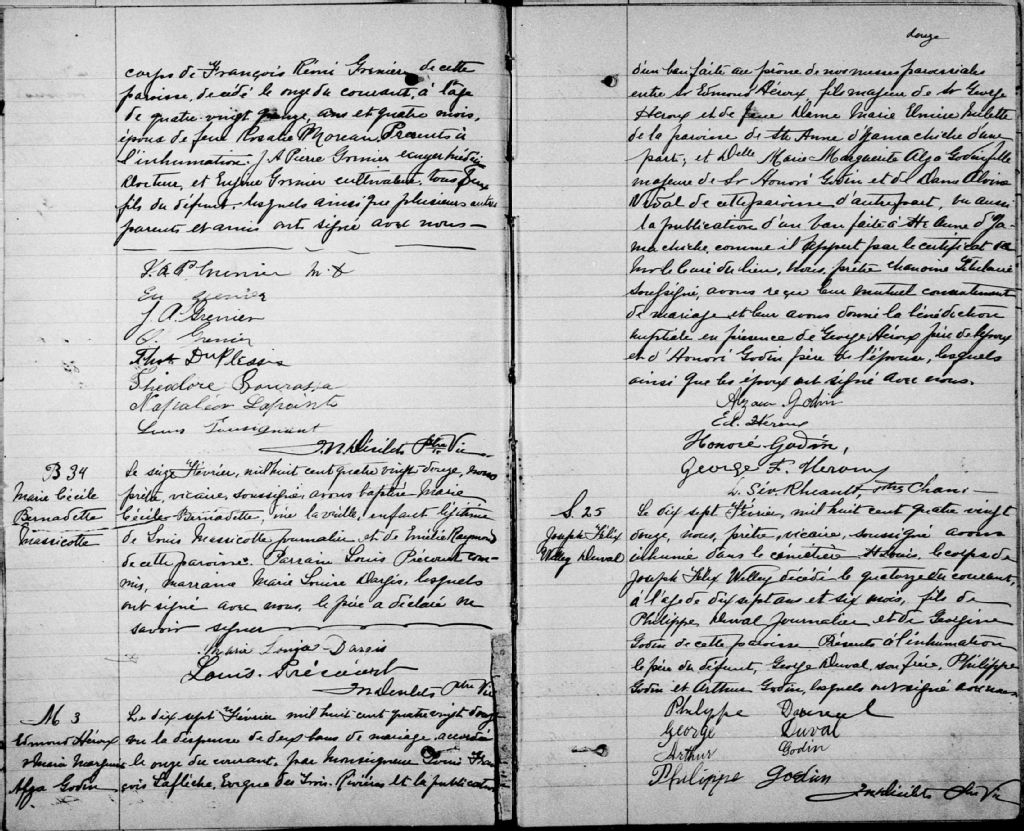 corps de François Rémi Grenier de cette
paroisse, décédé le onze du courant, à l'age
de quatre vingt quinze, ans et quatre mois,
époux de feue Rosalie Moreau. Présents à
l'inhumation: J. A Pierre Grenier ecuyer Médecin
Docteur, et Eugène Grenier cultivateur, tous deux
fils du défunt, lesquels ainsi que plusieurs autres
parents et amis ont signé avec nous
J. A. P. Grenier M. D
Eu grenier
J A. Grenier
C. Grenier
Duplessis
Théodore Bourassa
Napoléon Lapointe
Louis Tousignant
J. N. Désilets Ptre Vic
B 34
Marie Cécile
Bernadette
Massicotte
Le seize Février, mil huit cent quatre vingt douze, nous
prêtre, vicaire, soussigné, avons baptisé Marie
Cécile Bernadette, née la veille, enfant légitime
de Louis Massicotte journalier et de Emélie Raymond
de cette paroisse. Parrain Louis Précourt com-
mis, marraine Marie Louise Dargis, lesquels
ont signé avec nous, le père a déclaré ne
savoir signer
Maria Louisa Dargis
Louis. Précourt
J N Désilets Ptre Vic
M 3
Edmond Héroux
& Marie Marguerite
Alza Godin
Le dix sept Février mil huit cent quatre vingt douze
vu la dispense de deux bans de mariage, accordée
le onze du courant, par Monseigneur Louis Fran
çois Laflèche, Evêque des Trois-Rivières et la publication
douze
d'un ban faite au prône de nos messes paroissiales
entre Sr Edmond Héroux, fils majeur de Sr George
Héroux et de feue Dame Marie Elmire
de la paroisse de Ste Anne d'Yamachiche d'une
part; et Delle Marie Marguerite Alza Godin fille
majeure de Sr Honoré Godin et de Dame Alvina
Vidal de cette paroisse d'autre part, vu aussi
la publication d'un ban faite à Ste Anne d'Ya-
machiche comme il appert par le certificat de
Mr le Curé du lieu, Nous, prêtre chanoine Titulaire
soussigné, avons reçu leur mutuel consentement
de mariage et leur avons donné la bénédiction
nuptiale en présence de George Héroux père de l'époux
et d'Honoré Godin père de l'épouse, lesquels
ainsi que les époux ont signé avec nous.
Godin
Ed. Héroux
Honoré Godin,
George F. Heroux
L. Sév. Rheault, ptre Chan
S. 25
Joseph Félix
Willey Duval
Le dix sept Février, mil huit cent quatre vingt
douze, nous, prêtre, vicaire, soussigné avons
inhumé dans le cimetière St Louis, le corps de
Joseph Félix Willey décédé le quatorze du courant,
à l'age de dix sept ans et six mois, fils de
Philippe Duval Journalier et de Georgine
Godin de cette paroisse Présents à l'inhumation
le père du défunt, George Duval, son frère, Philippe
Godin et Arthur Godin, lesquels ont signé avec nous
Philippe Duval
George Duval
Arthur Godin
Philippe Godin
J N Désilets Ptre Vic